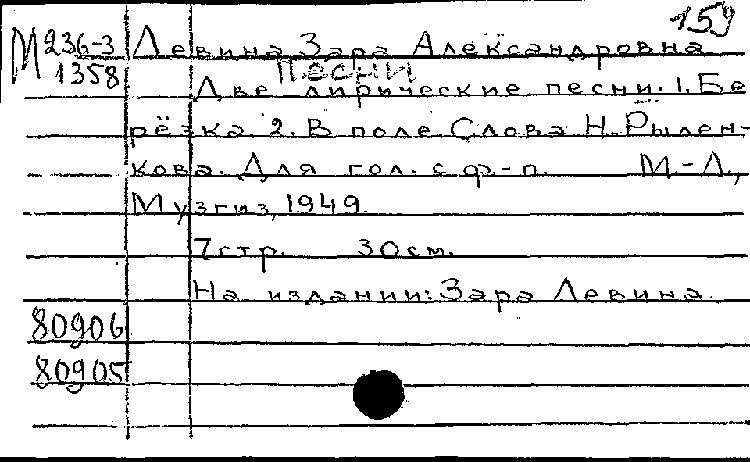 159
М 236-3 Левина Зара Александровна
1358 Песни
Две лирические песни. 1. Бе
рёзка 2. В поле Слова Н. Рылен-
кова. Для гол. с ф-п. М.-Л.,
Музгиз, 1949
7 стр. 30 см.
На издании: Зара Левина
80906
80905